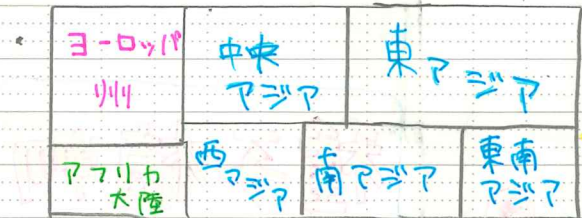 ヨーロッパ
州
中央
アジア
東アジア
アフリカ
大陸
西
アジア
南アジア
東南
アジア